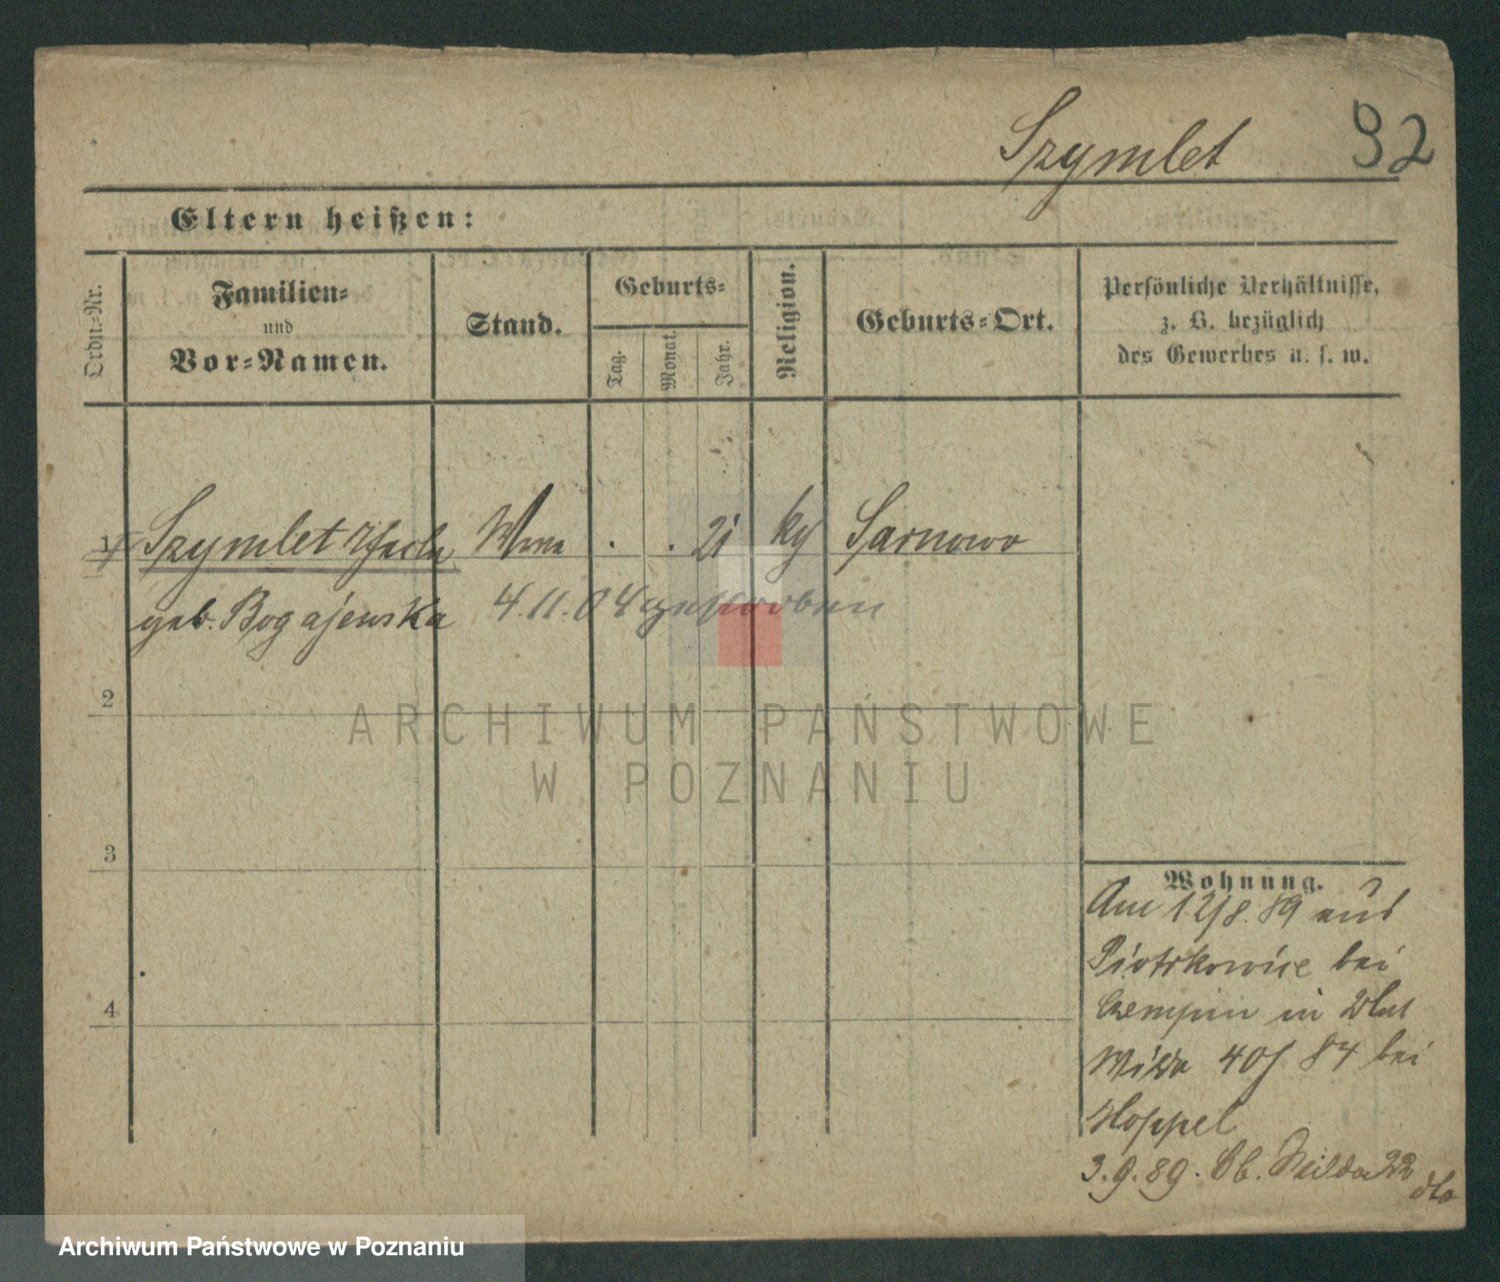 Szymlet 92
Eltern heißen:
Ordn.-Nr.
Familien-
und
Vor-Namen.
Stand.
Geburts-
Tag.
Monat.
Jahr.
Religion.
Geburts-Ort.
Persönliche Verhältnisse,
z. B. bezüglich
des Gewerbes u. s. w.
1 Szymlet . . 21 kg Sarnowo
geb. Bogajewska 4.11.04 gestorben
2
3
4
ARCHIWUM PAŃSTWOWE
W POZNANIU
Wohnung.
Am 12/8.89 aus
Piotrkowice bei
Czempin in
Wilda 40 bei
Hoppel
3.9.89. Ob. Wilda 22
Archiwum Państwowe w Poznaniu